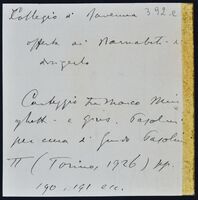 Collegio di Ravenna 392.2
offerta ai Barnabiti - di
dirigerlo
Carteggio tra Marco Min
ghetti - e Gius. Pasolini
per cura di Guido Pasolini
II (Torino, 1926) pp.
190, 191 ecc.